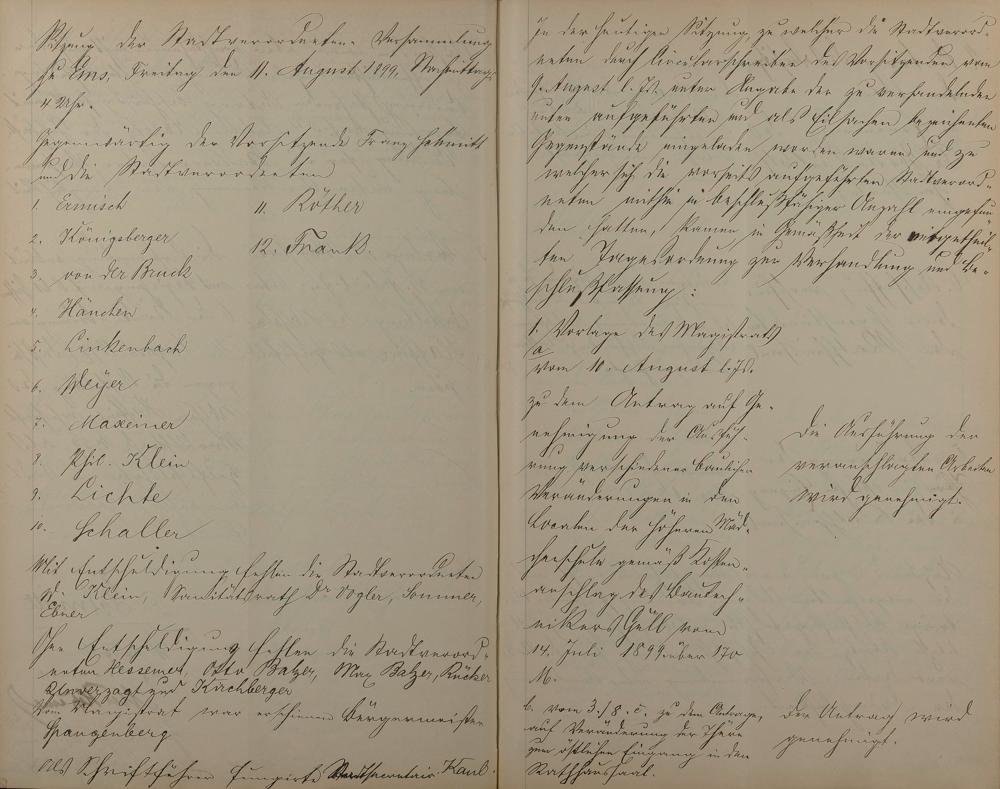 Sitzung der Stadtverordneten-Versammlung
zu Ems, Freitag den 11. August 1899, Nachmittags
4 Uhr.
Gegenwärtig der Vorsitzende Franz Schmitt
und die Stadtverordneten
1. Ermisch
2. Königsberger
3. von der Bruck
4. Hänchen
5. Linkenbach
6. Meyer
7. Maxeiner
8. Phil. Klein
9. Lichte
10. Schaller
11. Röther
12. Frank.
Mit Entschuldigung fehlen die Stadtverordneten
Dr. Klein, Sanitätsrath Dr. Vogler, Sommer,
Ebner
Ohne Entschuldigung fehlen die Stadtverord-
neten Hessemer, Otto Balzer, Max Balzer, Rücker
Unverzagt und Kirchberger
Vom Magistrat war erschienen Bürgermeister
Spangenberg
Als Schriftführer fungirte Stadtsecretair Kaul.
In der heutigen Sitzung, zu welcher die Stadtverord-
neten durch Circularschreiben des Vorsitzenden vom
9. August l. Js. unter Angabe der zu verhandelnden
unten aufgeführten und als Eilsachen bezeichneten
Gegenstände eingeladen worden waren und zu
welcher sich die vorseits aufgeführten Stadtverord-
neten mithin in beschlußfähiger Anzahl eingefun-
den hatten, kamen in Gemäßheit der mitgetheil-
ten Tagesordnung zur Verhandlung und Be-
schlußfassung:
1. Vorlage des Magistrats
a
vom 10. August l. Js.
zu dem Antrag auf Ge-
nehmigung der Ausfüh-
rung verschiedener baulicher
Veränderungen in den
Localen der höheren Mäd-
chenschule gemäß Kosten-
anschlag des Bautech-
nikers Güll vom
14. Juli 1899 über 170
M.
Die Ausführung der
veranschlagten Arbeiten
wird genehmigt.
b. vom 3./8. c. zu dem Antrage,
auf Veränderung der Thüre
zum östlichen Eingang in den
Rathhaussaal.
Der Antrag wird
genehmigt.